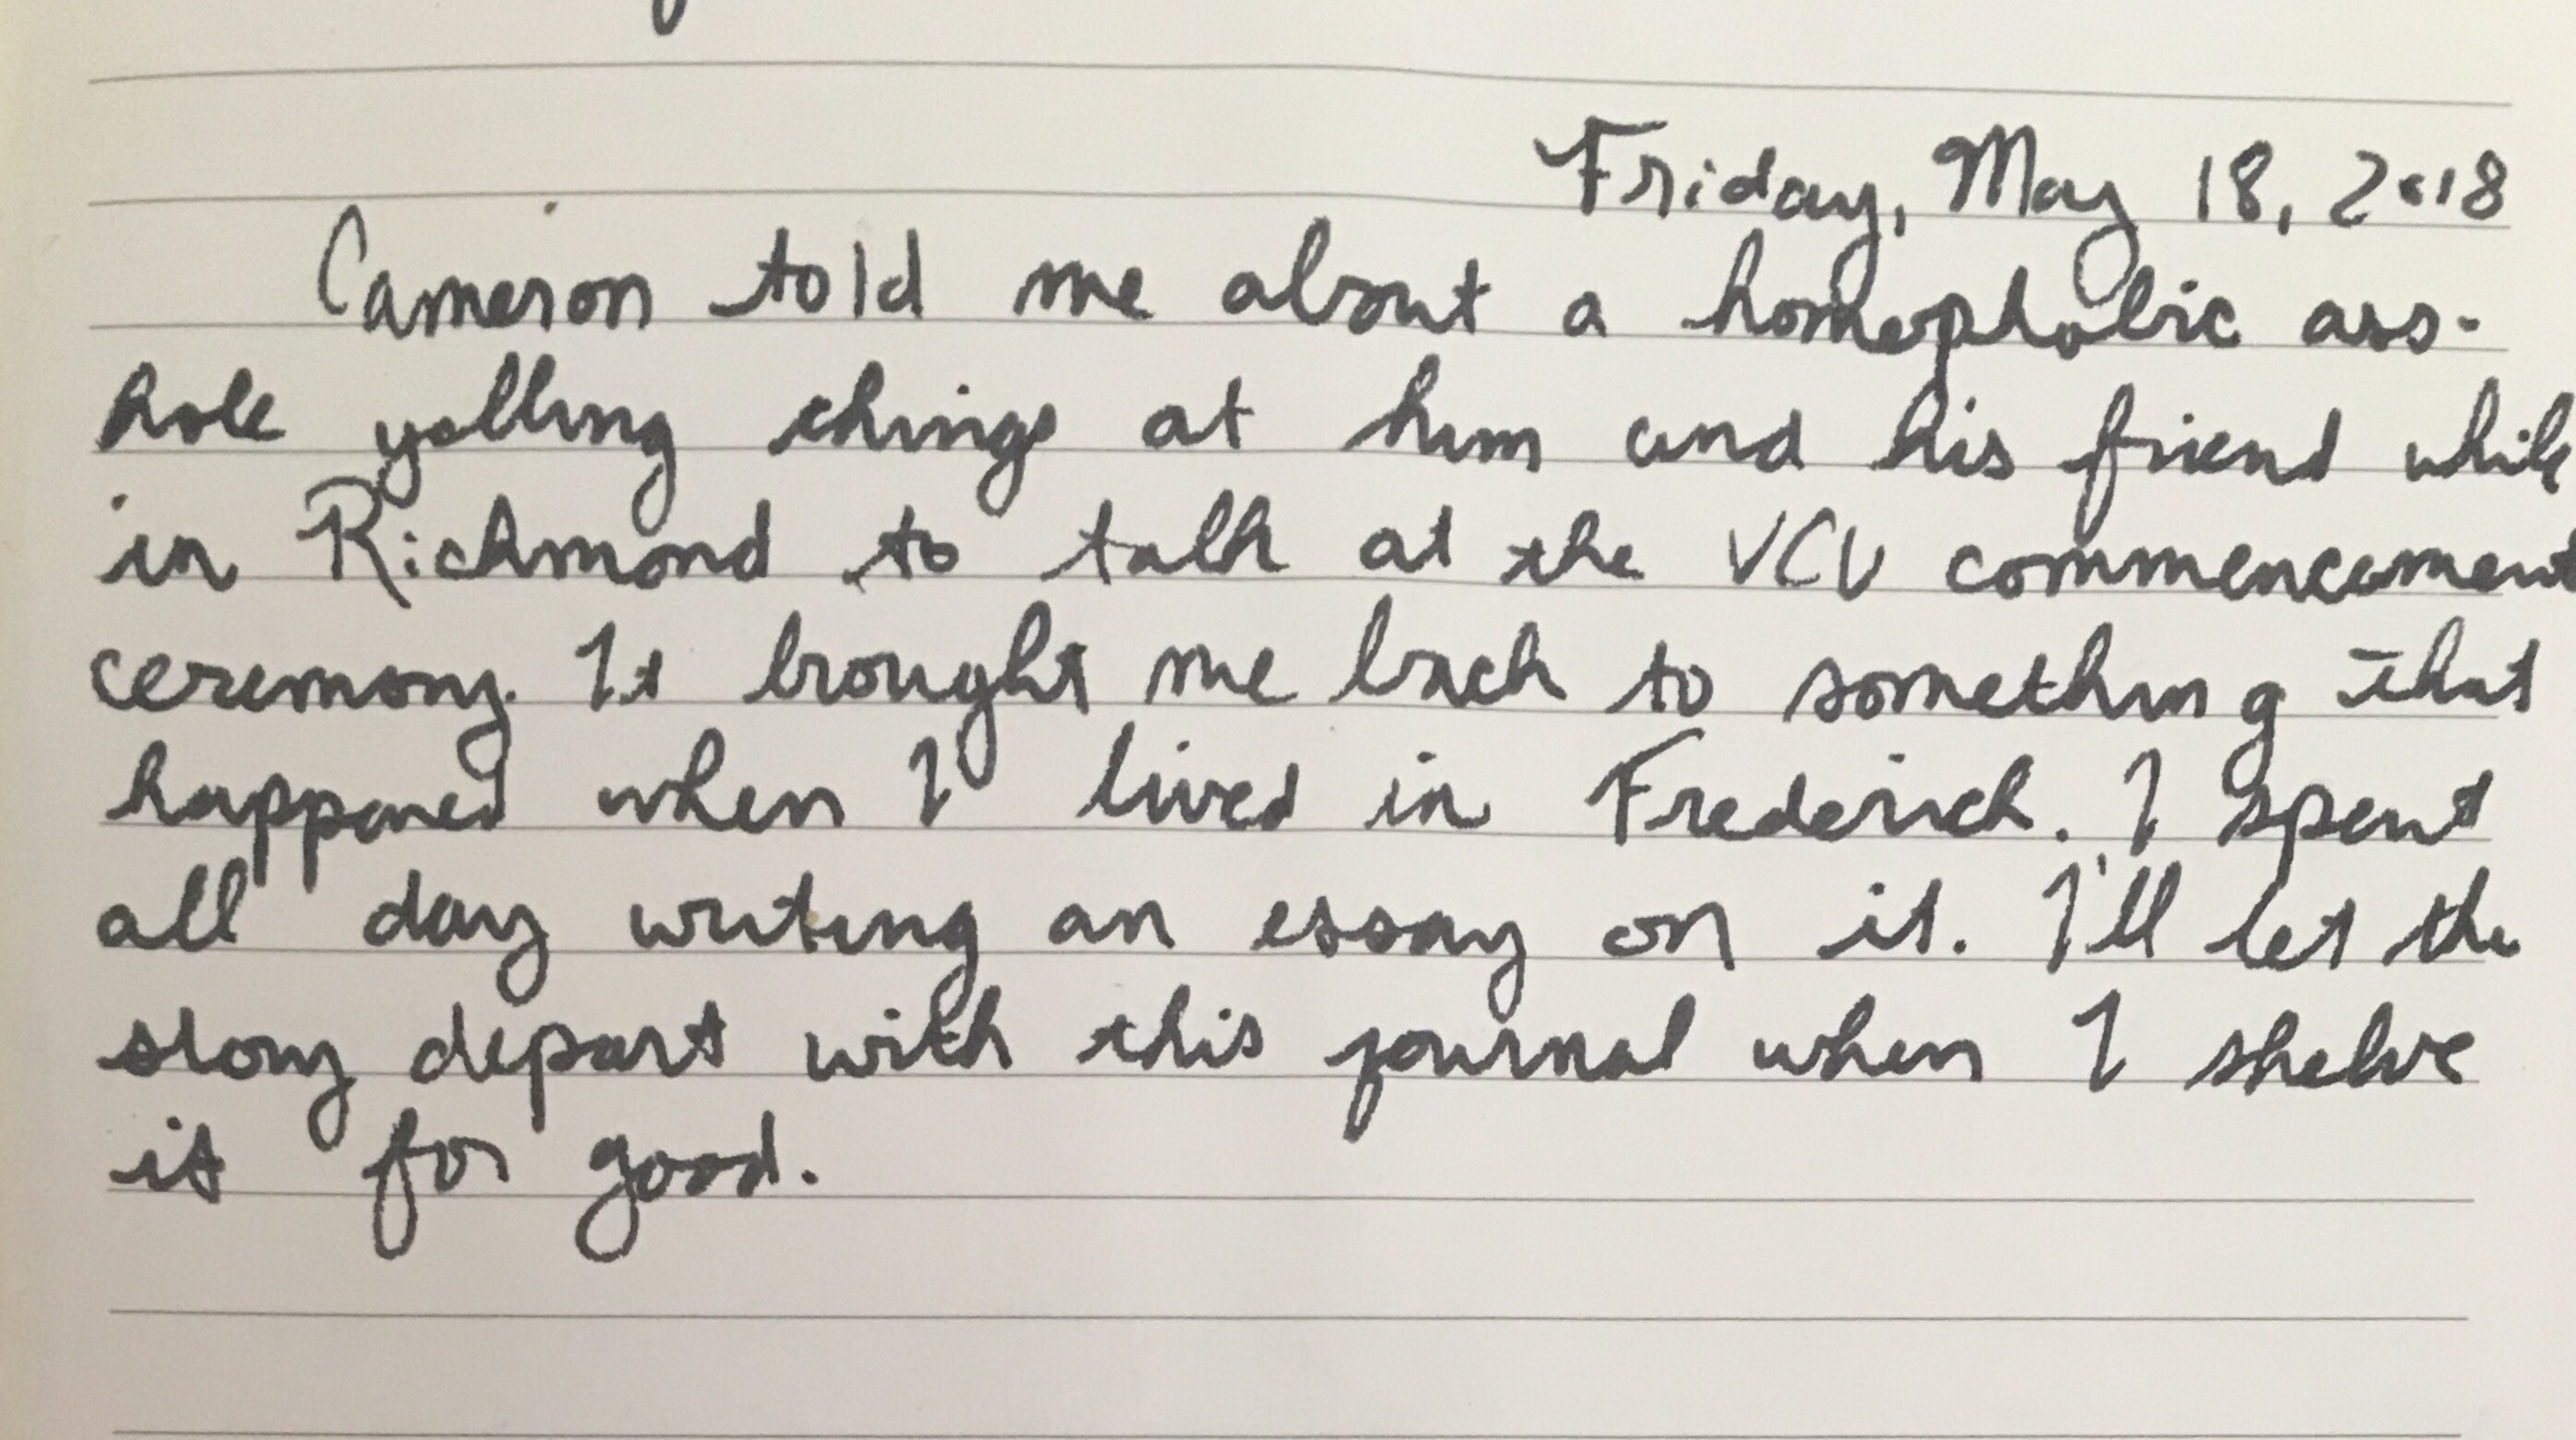 Friday, May 18, 2018
Cameron told me about a homophobic ass-
hole yelling things at him and his friend while
in Richmond to talk at the VCU commencement
ceremony. It brought me back to something that
happened when I lived in Frederick. I spent
all day writing an essay on it. I'll let the
story depart with this journal when I shelve
it for good.